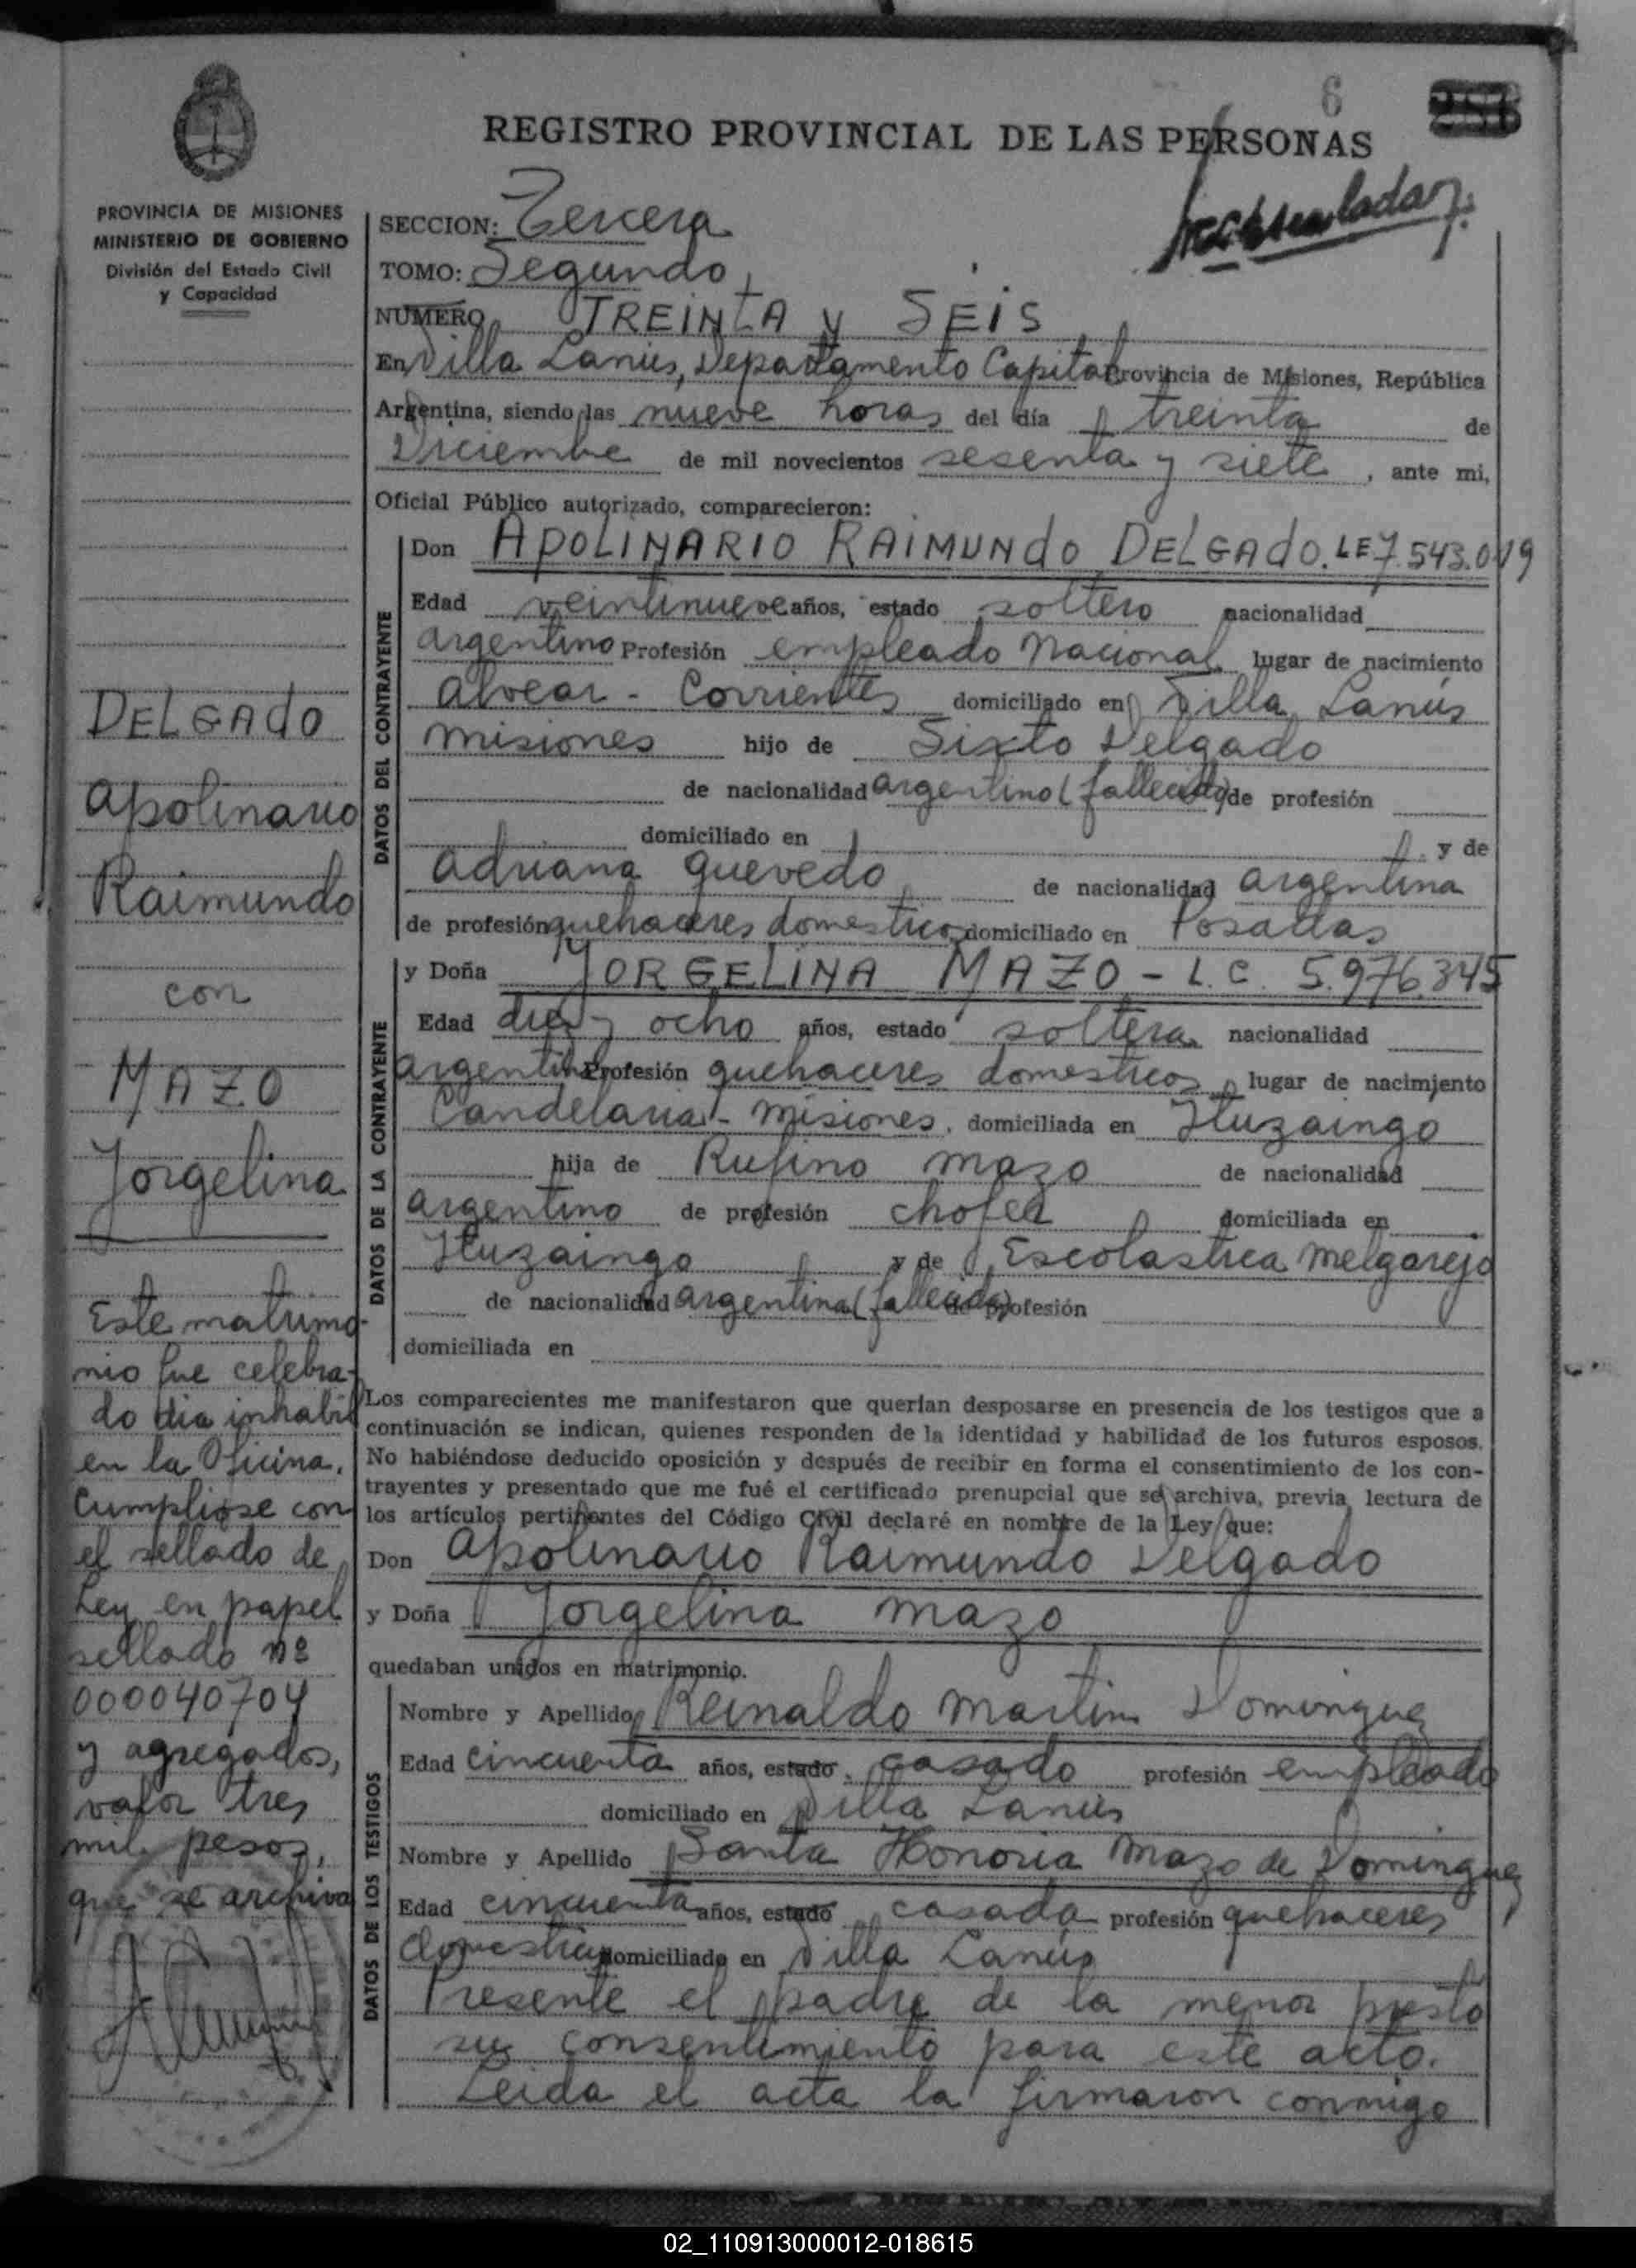 6
REGISTRO PROVINCIAL DE LAS PERSONAS
PROVINCIA DE MISIONES
MINISTERIO DE GOBIERNO
División del Estado Civil
y Capacidad
SECCION: Tercera
TOMO: Segundo
NUMERO TREINTA y SEIS
En Villa Lanús, Departamento Capital Provincia de Misiones, República
Argentina, siendo las nueve horas del día treinta de
Diciembre de mil novecientos sesenta y siete, ante mi,
Oficial Público autorizado, comparecieron:
DELGADO
Apolinario
Raimundo
con
MAZO
Jorgelina
Este matrimo-
nio fue celebra-
do dia inhabil
en la Oficina.
Cumpliose con
el sellado de
Ley en papel
sellado nº
000040704
y agregados,
valor tres
mil pesos,
que se archiva
DATOS DEL CONTRAYENTE
Don APOLINARIO RAIMUNDO DELGADO. LE 7.543.019
Edad veintinueve años, estado soltero nacionalidad
argentino Profesión empleado Nacional lugar de nacimiento
Alvear - Corrientes domiciliado en Villa Lanús
Misiones hijo de Sixto Delgado
de nacionalidad argentino (fallecido) de profesión
domiciliado en y de
Adriana Quevedo de nacionalidad argentina
de profesión quehaceres domesticos domiciliado en Posadas
DATOS DE LA CONTRAYENTE
y Doña JORGELINA MAZO - L.C. 5.976.345
Edad diez y ocho años, estado soltera nacionalidad
argentina Profesión quehaceres domesticos, lugar de nacimiento
Candelaria - Misiones, domiciliada en Ituzaingo
hija de Rufino Mazo de nacionalidad
argentino de profesión chofer domiciliada en
Ituzaingo y de Escolastica Melgarejo
de nacionalidad argentina (fallecida) de profesión
domiciliada en
Los comparecientes me manifestaron que querían desposarse en presencia de los testigos que a
continuación se indican, quienes responden de la identidad y habilidad de los futuros esposos.
No habiéndose deducido oposición y después de recibir en forma el consentimiento de los con-
trayentes y presentado que me fué el certificado prenupcial que se archiva, previa lectura de
los artículos pertinentes del Código Civil declaré en nombre de la Ley que:
Don Apolinario Raimundo Delgado
y Doña Jorgelina Mazo
quedaban unidos en matrimonio.
DATOS DE LOS TESTIGOS
Nombre y Apellido Reinaldo Martin Dominguez
Edad cincuenta años, estado casado profesión empleado
domiciliado en Villa Lanús
Nombre y Apellido Santa Honoria Mazo de Dominguez
Edad cincuenta años, estado casada profesión quehaceres
domesticos domiciliado en Villa Lanús
Presente el padre de la menor presto
su consentimiento para este acto.
Leida el acta la firmaron conmigo
02_110913000012-018615